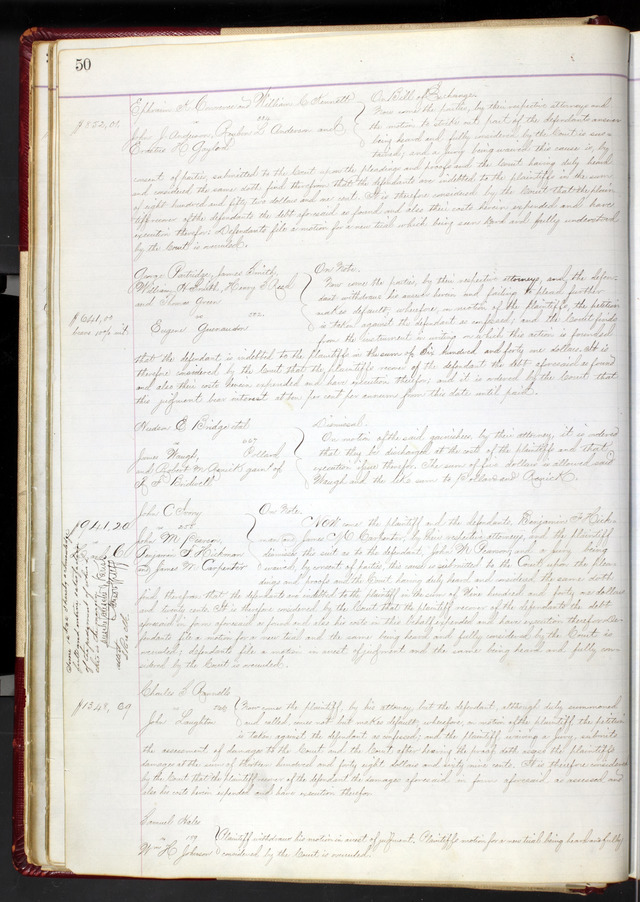 50
Ephraim F. and William Kennett On Bill of Exchange
$852,01 Now come the parties, by their respective attorneys and
John J. Anderson, Reuben L. Anderson and the motion to strike out part of the defendants answer
Erastus H. Gaylord being heard and fully considered by the Court is
and a jury being waived this cause is, by
consent of parties, submitted to the Court upon the pleadings and proofs and the Court having duly heard
and considered the same doth find therefrom that the defendants are indebted to the plaintiffs in the sum
of eight hundred and fifty two dollars and one cent. It is therefore considered by the Court that the plain-
tiffs recover of the defendants the debt aforesaid as found and also their costs herein expended and have
execution therefor. Defendants file a motion for a new trial which being seen heard and fully understood
by the Court is overruled.
George Partridge, James Smith, On Note.
William H. Smith, Henry S. Now come the parties, by their respective attorneys, and the defen-
and Thomas Green dant withdraws his answer herein and failing to plead further
$641,00 makes default; wherefore, on motion of the plaintiffs, the petition
bears 10% int. Eugene is taken against the defendant as confessed, and the Court finds
from the instrument in writing on which this action is founded
that the defendant is indebted to the plaintiffs in the sum of Six hundred and forty one dollars. It is
therefore considered by the Court that the plaintiffs recover of the defendant the debt aforesaid as found
and also their costs herein expended and have execution therefor; and it is ordered by the Court that
this judgment bear interest at ten per cent per annum from this date until paid.
Hudson E. Bridge et al Dismissal.
On motion of the said garnishees, by their attorney, it is ordered
James Waugh, Pollard that they be discharged at the cost of the plaintiffs and that
and Robert M. garn of execution issue therefor. The sum of five dollars is allowed said
Bidwell Waugh and the like sum to Pollard and
John C. Ivory On Note.
$941,20 Now come the plaintiff and the defendants, Benjamin F. Hick-
John M. Pearson, man and James M. Carpenter, by their respective attorneys, and the plaintiff
Benjamin F. Hickman dismisses this suit as to the defendant, John M. Pearson, and a jury being
and James M. Carpenter waived, by consent of parties, this cause is submitted to the Court upon the plea-
dings and proofs and the Court having duly heard and considered the same doth
find therefrom that the defendants are indebted to the plaintiff in the sum of Nine hundred and forty one dollars
and twenty cents. It is therefore considered by the Court that the plaintiff recover of the defendants the debt
aforesaid in form aforesaid as found and also his costs in this behalf expended and have execution therefor. De-
fendants file a motion for a new trial and the same being heard and fully considered by the Court is
overruled; defendants file a motion in arrest of judgment and the same being heard and fully con-
sidered by the Court is overruled.
Charles S.
$1348,69 Now comes the plaintiff, by his attorney, but the defendant, although duly summoned
John Laughton and called, comes not but makes default; wherefore, on motion of the plaintiff the petition
is taken against the defendant as confessed; and the plaintiff waiving a jury, submits
the assessment of damages to the Court and the Court after hearing the proof doth assess the plaintiffs
damages at the sum of thirteen hundred and forty eight dollars and sixty nine cents. It is therefore considered
by the Court that the plaintiff recover of the defendant the damages aforesaid in form aforesaid as assessed and
also his costs herein expended and have execution therefor
Samuel Gates
119 Plaintiff withdraws his motion in arrest of judgment. Plaintiffs motion for a new trial being heard and fully
Wm H. Johnson considered by the Court is overruled.